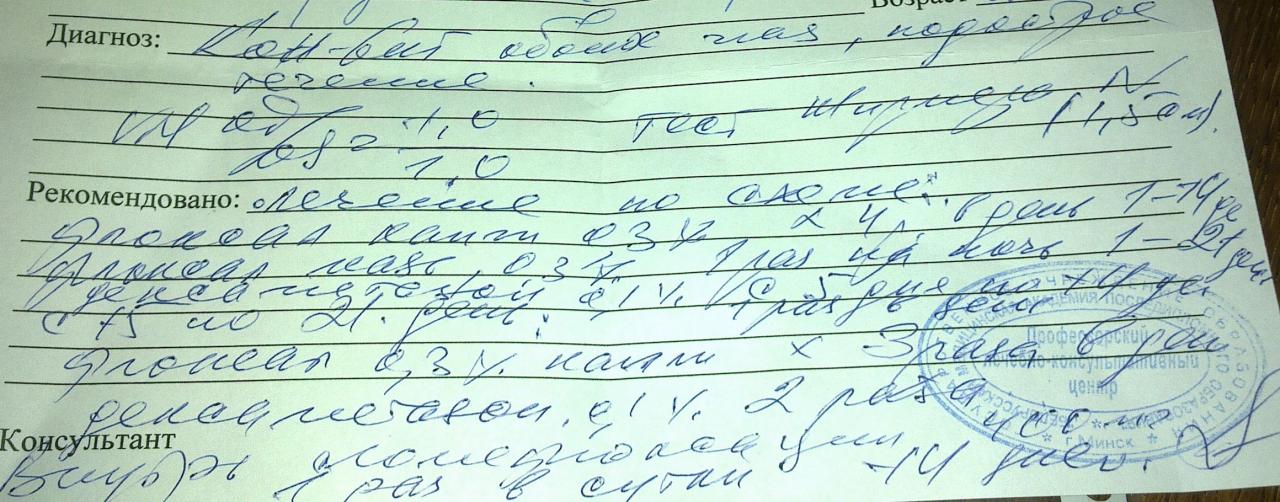 Возраст
Диагноз: Кон-вит обоих глаз, подострое
течение.
Vis od/os = 1,0/1,0 тест Ширмера N (1,5 см).
Рекомендовано: Лечение по схеме:
Флоксал капли 0,3% x 4 р. в день 1-14 де
Флоксал мазь 0,3% 1 раз на ночь 1-21 день
Дексаметазон 0,1% с 5 дня по 14 де
1 раз в день
с 15 по 21 день:
Флоксал 0,3% капли x 3 раза в день
дексаметазон 0,1% 2 раза
Консультант
Внутрь
1 раз в сутки 14 дней.
Профессорский
лечебно-консультативный
центр
г. Минск